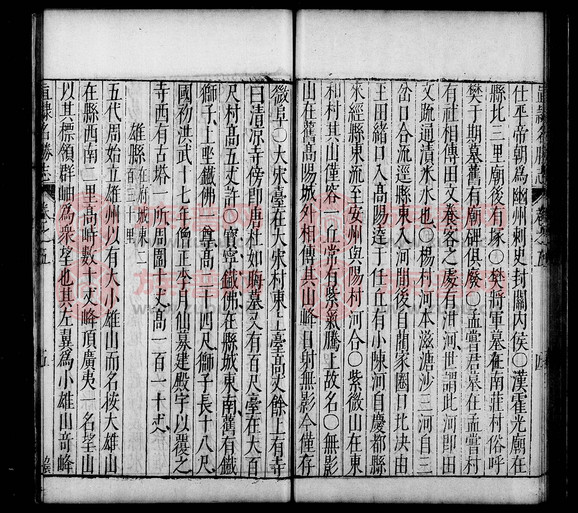 仕平帝朝爲幽州刺史封關內侯〇漢霍光廟在
縣北三里廟後有塚〇樊將軍墓在南莊村俗呼
樊于期墓舊有廟碑俱廢〇孟嘗君墓在孟嘗村
有社相傳田文養客之處有泄河世謂此河即田
文疏通漬米水也〇楊村河本滋溏沙三河自三
岔口合流逕縣東入河間後自閻家圈口北決由
王田緒口入高陽遶于任丘有小陳河自慶都縣
來經縣東流至安州與陽村河合〇紫微山在東
和村其山僅容一丘常有紫氣騰上故名〇無影
山在舊高陽城外相傳其山峰日射無影今僅存
微阜〇大宋臺在大宋村東上臺高丈餘上有寺
曰清涼寺傍即唐杜如晦墓又有百尺臺在大百
尺村高五丈許〇寶寧鐵佛在縣城東南舊有鐵
獅子上坐鐵佛一尊高二十四尺獅子長十八尺
國初洪武十七年僧正李月仙募建殿宇以覆之
寺西有古塔一所周圍十丈高一百一十丈
雄縣 在府城東二百三十里
五代周始立雄州以有大小雄山而名按大雄山
在縣西南二里高峙數十丈峰頂廣夷一名望山
以其標領群岫爲衆望也其左翼爲小雄山奇峰
直隸名勝志
卷之五
五